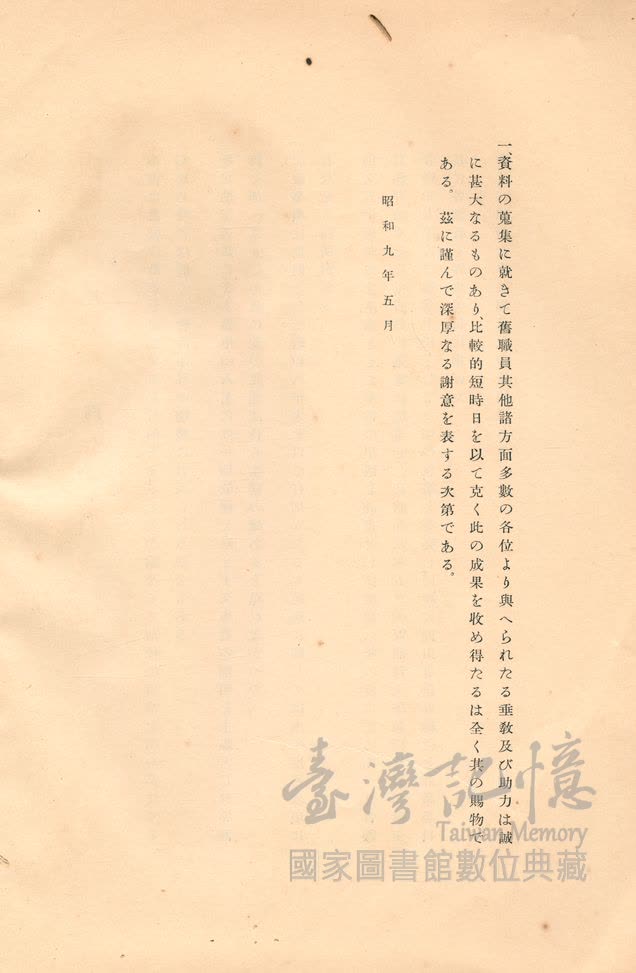 一、資料の蒐集に就きて舊職員其他諸方面多數の各位より與へられたる垂教及び助力は誠
に甚大なるものあり、比較的短時日を以て克く此の成果を收め得たるは全く其の賜物で
ある。 茲に謹んで深厚なる謝意を表する次第である。
昭和九年五月
臺灣記憶
Taiwan Memory
國家圖書館數位典藏